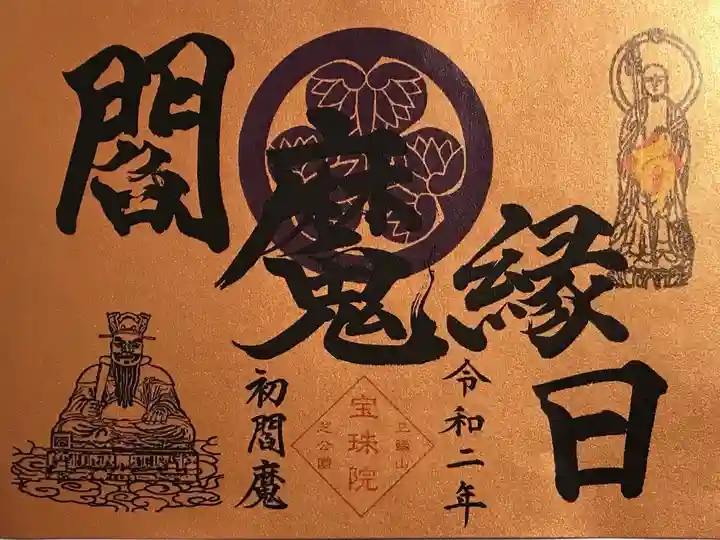 閻魔縁日
初閻魔
三縁山
宝珠院
芝公園
令和二年